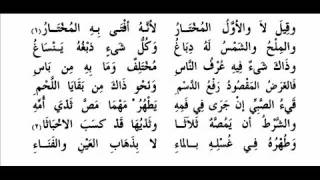 وَقِيلَ لاَ وَالأَوَّلُ المُخْتَـارُ لأَنَّـهُ أَفْتَى بِـهِ المُخْتَـارُ (١)
وَالمِلْحُ وَالشَّمْسُ لَهُ دِبَاغُ وَكُلُّ شَـىءٍ ذَبْغُهُ يَنْسَـاغُ
وَذَاكَ شَـىءٌ فِيهِ عُرْفُ النَّاسِ مُخْتَلِفٌ وَمَا بِهِ مِن بَاسِ
فَالغَرَضُ المَقْصُودُ رَفْعُ الدَّسَمِ وَنَحْوِ ذَاكَ مِن بَقَايَا اللَّحْمِ
قَيءُ الصَّبِيِّ إنْ جَرَى فِي فَمِهِ يَطْهُرُ مَهْمَا مَصَّ ثَدْيَ أُمِّهِ
وَالشَّرْطُ أَن يَمُصَّهُ ثَلاَثَـا وَثَدْيُهَا قَدْ كَسَبَ الاخْبَاثَـا (٢)
وَطُهْرُهُ فِي غُسْلِهِ بِـالماءِ لاَ بِذَهَابِ العَيْنِ وَالفَنَـاءِ